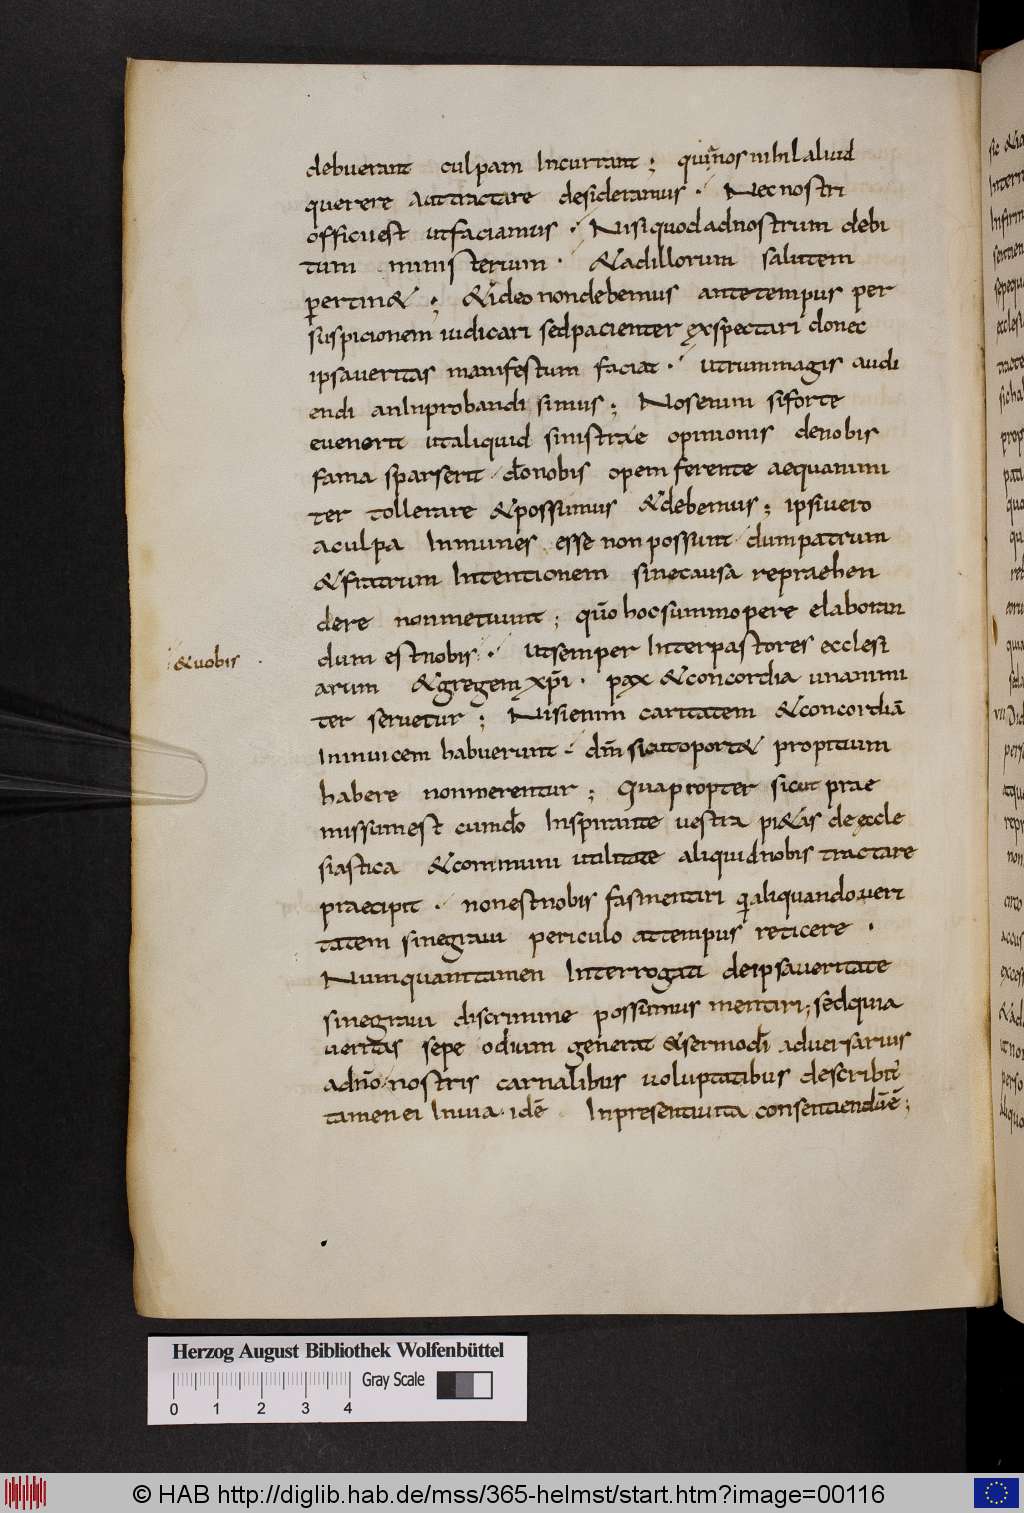 debuerant culpam Incurrant ; quia nos nihil aliud
querere aut tractare desideramus · Nec nostri
officii est ut faciamus · Nisi quod ad nostrum debi
tum ministerium · & ad illorum salutem
p̱ertin& ; & ideo non debemus ante tempus per
suspicionem iudicari sed pacienter ęxspectari donec
ipsa ueritas manifestum faciat · utrum magis audi
endi an Inprobandi simus ; Nos enim si forte
euenerit ut aliquid sinistrae opinionis de nobis
fama sparserit do nobis opem ferente aequanimi
ter tollerare & possumus & debemus ; ipsi uero
a culpa Inmunes esse non possunt dum patrum
& fratrum Intentionem sine causa repraehen
dere non metuunt ; quo hoc summopere elaboran
dum est nobis · ut semper Inter pastores ecclesi
& uobis
arum & gregem xp̄i · pax & concordia unanimi
ter seruetur ; Nisi enim caritatem & concordiā
Inuicem habuerunt · dm̄ sicut oport& propitium
habere non merentur ; Quapropter sicut prae
missum est cum do Inspirante uestra pi&as de ęccle
siastica & communi utilitate aliquid nobis tractare
praecipit · non est nobis fas mentiri qui aliquando ueri
tatem sine graui periculo ad tempus reticere ·
Numquam tamen Interrogati de ipsa ueritate
sine graui discrimine possumus mentiri ; sed quia
ueritas sepe odium generat & sermo dī aduersarius
ad nō nostris carnalibus uoluptatibus describit
tamen ei In uia · idē In presenti uita consentiendū ē ;
Herzog August Bibliothek Wolfenbüttel
Gray Scale
0 1 2 3 4
© HAB http://diglib.hab.de/mss/365-helmst/start.htm?image=00116